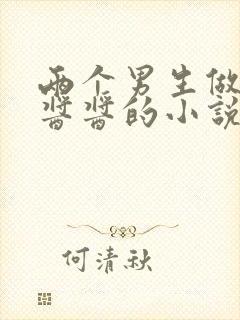 两个男生做
酱酱的小说
何清秋